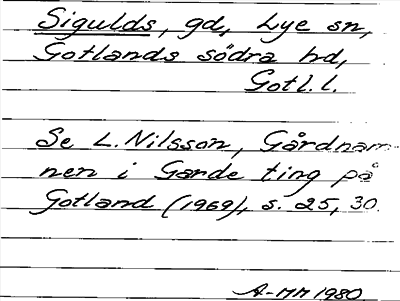 Sigulds, gd, Lye sn,
Gotlands södra hd,
Gotl. l.
Se L. Nilsson, Gårdnam-
nen i Garde ting på
Gotland (1969), s. 25, 30.
A-MM 1980